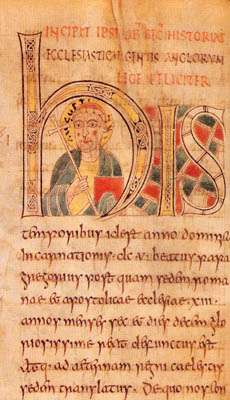 INCIPIT IPSIUS HISTORIAE
ECCLESIASTICAE GENTIS ANGLORUM
LEGE FELICITER
HIS
temporibus id est anno domini
incarnationis dcv beatus papa
gregorius postquam sedem roma
nae et apostolicae ecclesiae xiii
annos menses sex et dies decem glo
riosissime rexit defunctus est
atq; ad aeternam regni caelestis
sedem translatus. De quo nos con